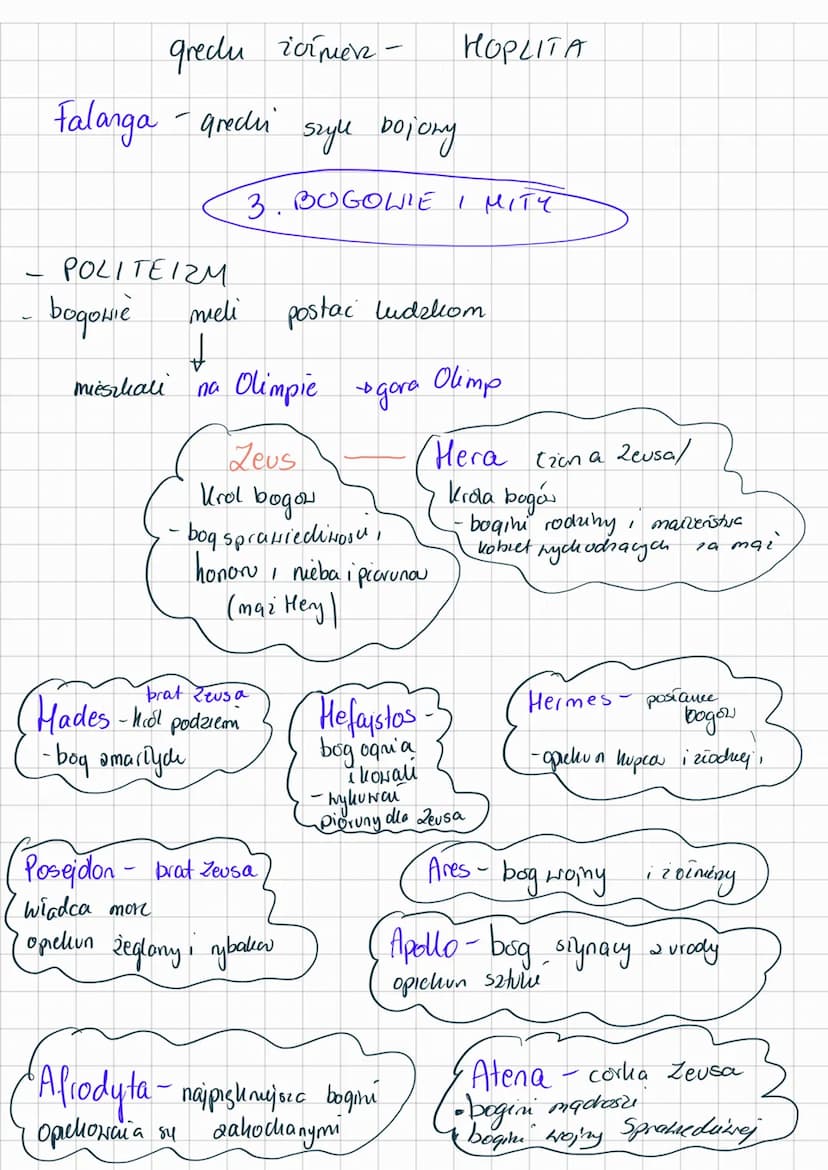 grecki żołnierz - HOPLITA
Falanga - grecki szyk bojowy
3. BOGOWIE I MITY
- POLITEIZM
- bogowie mieli postać ludzkom
mieszkali na Olimpie → gora Olimp
Zeus
Krol bogow
- bog sprawiedliwosci,
honoru, nieba i pioruna
(mąż Hery)
Hera (żona Zeusa/
Krola bogów
- bogini rodziny i małżeństw
kobiet wychodzących za mąż
brat Zeusa
Hades - król podziemi
- bog zmarłych
Hefajstos -
bóg ognia
i kowali
- wykuwał
pioruny dla Zeusa
Hermes - posłaniec
bogów
- opiekun kupców i złodziej,
Posejdon - brat Zeusa
władca morz
opiekun żeglarzy i rybaków
Ares - bog wojny i żołnierzy
Apollo - bóg słynący z urody
opiekun sztuki
Afrodyta - najpiękniejsza bogini
opiekowała się zakochanymi
Atena - corka Zeusa
• bogini mądrości
• bogini wojny Sprawiedliwej